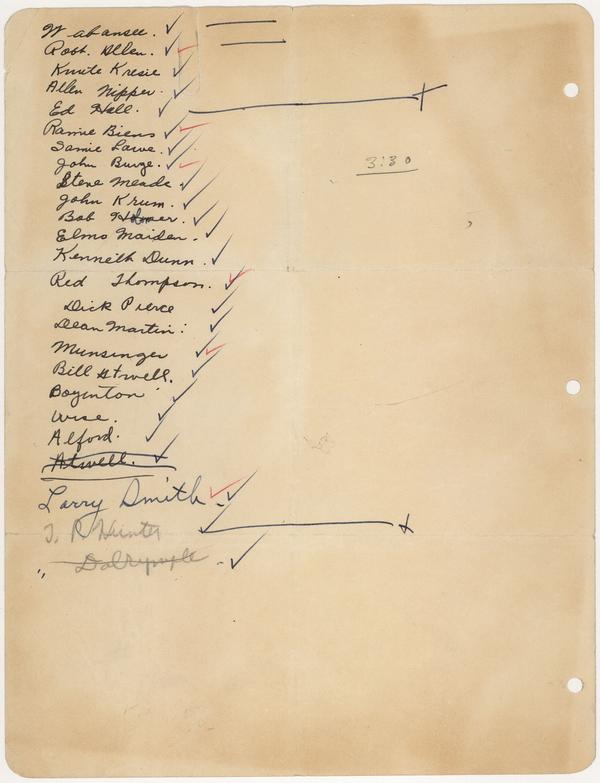 Wabansee.
Robt. Allen.
Knute Kresie
Allen Nipper.
Ed Hall.
Ramie Biens
Jamie Lowe.
John Burge.
3:30
Steve Meade
John Krum.
Bob
Elmo Maiden.
Kenneth Dunn.
Red Thompson.
Dick Pierce
Dean Martin:
Munsinger
Bill Atwell.
Boyinton
Wise.
Alford.
Atwell.
Larry Smith
J. R Hunter
" Dalrymple